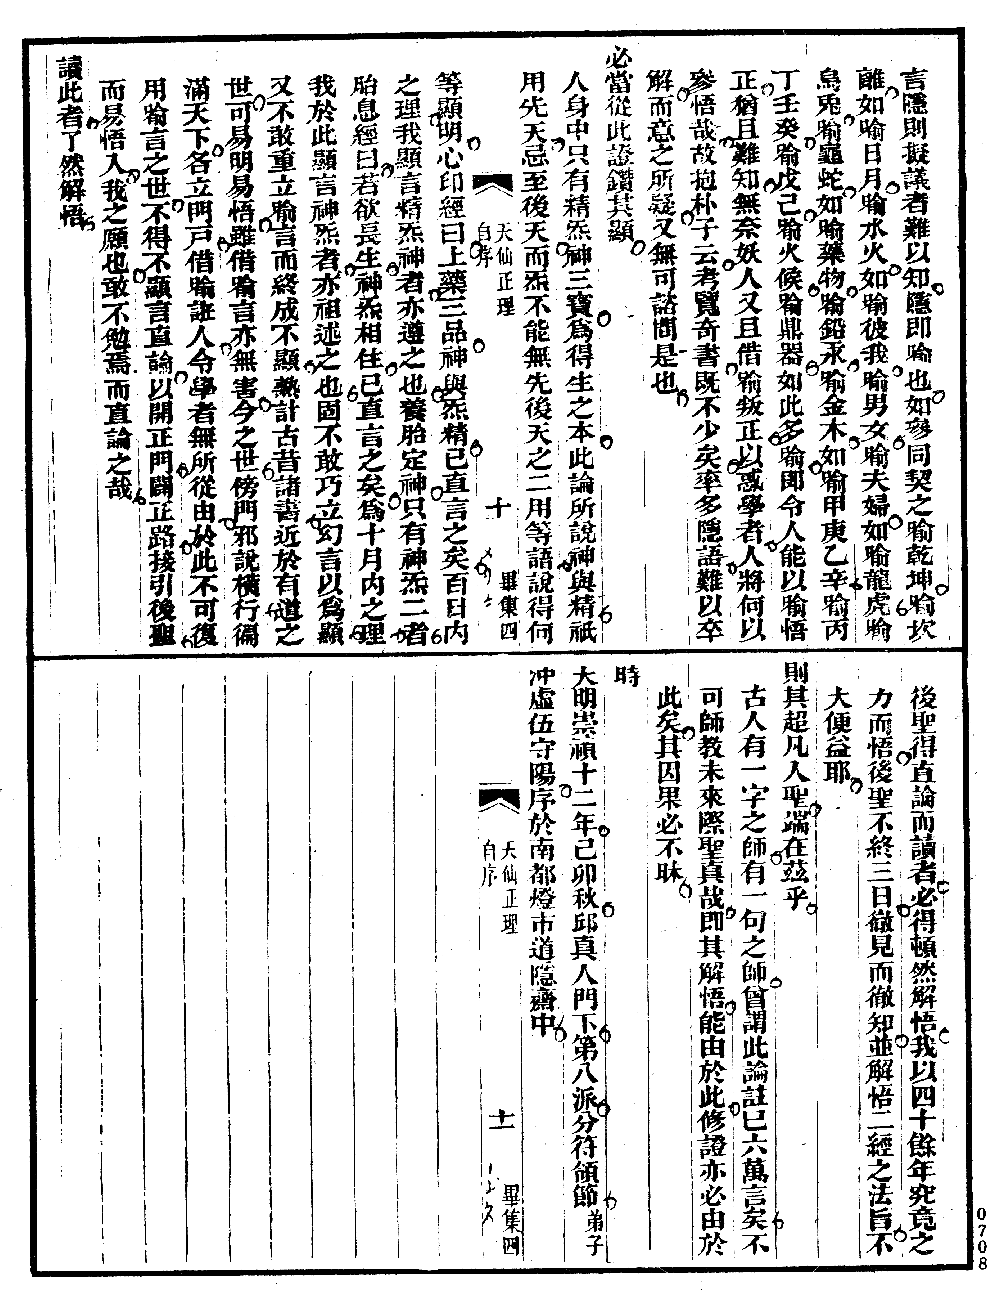 言隱則擬議者難以知隱即喻也如參同契之喻乾坤喻坎
離如喻日月喻水火如喻彼我喻男女喻夫婦如喻龍虎喻
烏兎喻龜蛇如喻藥物喻鉛汞喻金木如喻甲庚乙辛喻丙
丁壬癸喻戊己喻火候喻鼎器如此多喻即令人能以喻悟
正猶且難知無奈妖人又且借喻叛正以惑學者人將何以
參悟哉故抱朴子云考覽奇書既不少矣率多隱語難以卒
解而意之所疑又無可諮問是也
必當從此證鑽其顯
人身中只有精炁神三寶爲得生之本此論所說神與精祇
用先天忌至後天而炁不能無先後天之二用等語說得何
天仙正理
自序
十
畢集四
等顯明心印經曰上藥三品神與炁精已直言之矣百日內
之理我顯言精炁神者亦遵之也養胎定神只有神炁二者
胎息經曰若欲長生神炁相住已直言之矣爲十月內之理
我於此顯言神炁者亦祖述之也固不敢巧立幻言以爲顯
又不敢重立喻言而終成不顯熟計古昔諸書近於有道之
世可易明易悟雖借喻言亦無害今之世傍門邪說橫行徧
滿天下各立門戶借喻誑人令學者無所從由於此不可復
用喻言之世不得不顯言直論以開正門闢正路接引後聖
而易悟入我之願也敢不勉焉而直論之哉
讀此者了然解悟
後聖得直論而讀者必得頓然解悟我以四十餘年究竟之
力而悟後聖不終三日徹見而徹知並解悟二經之法旨不
大便益耶
則其超凡人聖端在茲乎
古人有一字之師有一句之師曾謂此論註已六萬言矣不
可師教未來際聖真哉即其解悟能由於此修證亦必由於
此矣其因果必不昧
時
大明崇禎十二年己卯秋邱真人門下第八派分符領節弟子
冲虛伍守陽序於南都燈市道隱齋中
天仙正理
自序
十一
畢集四
0708